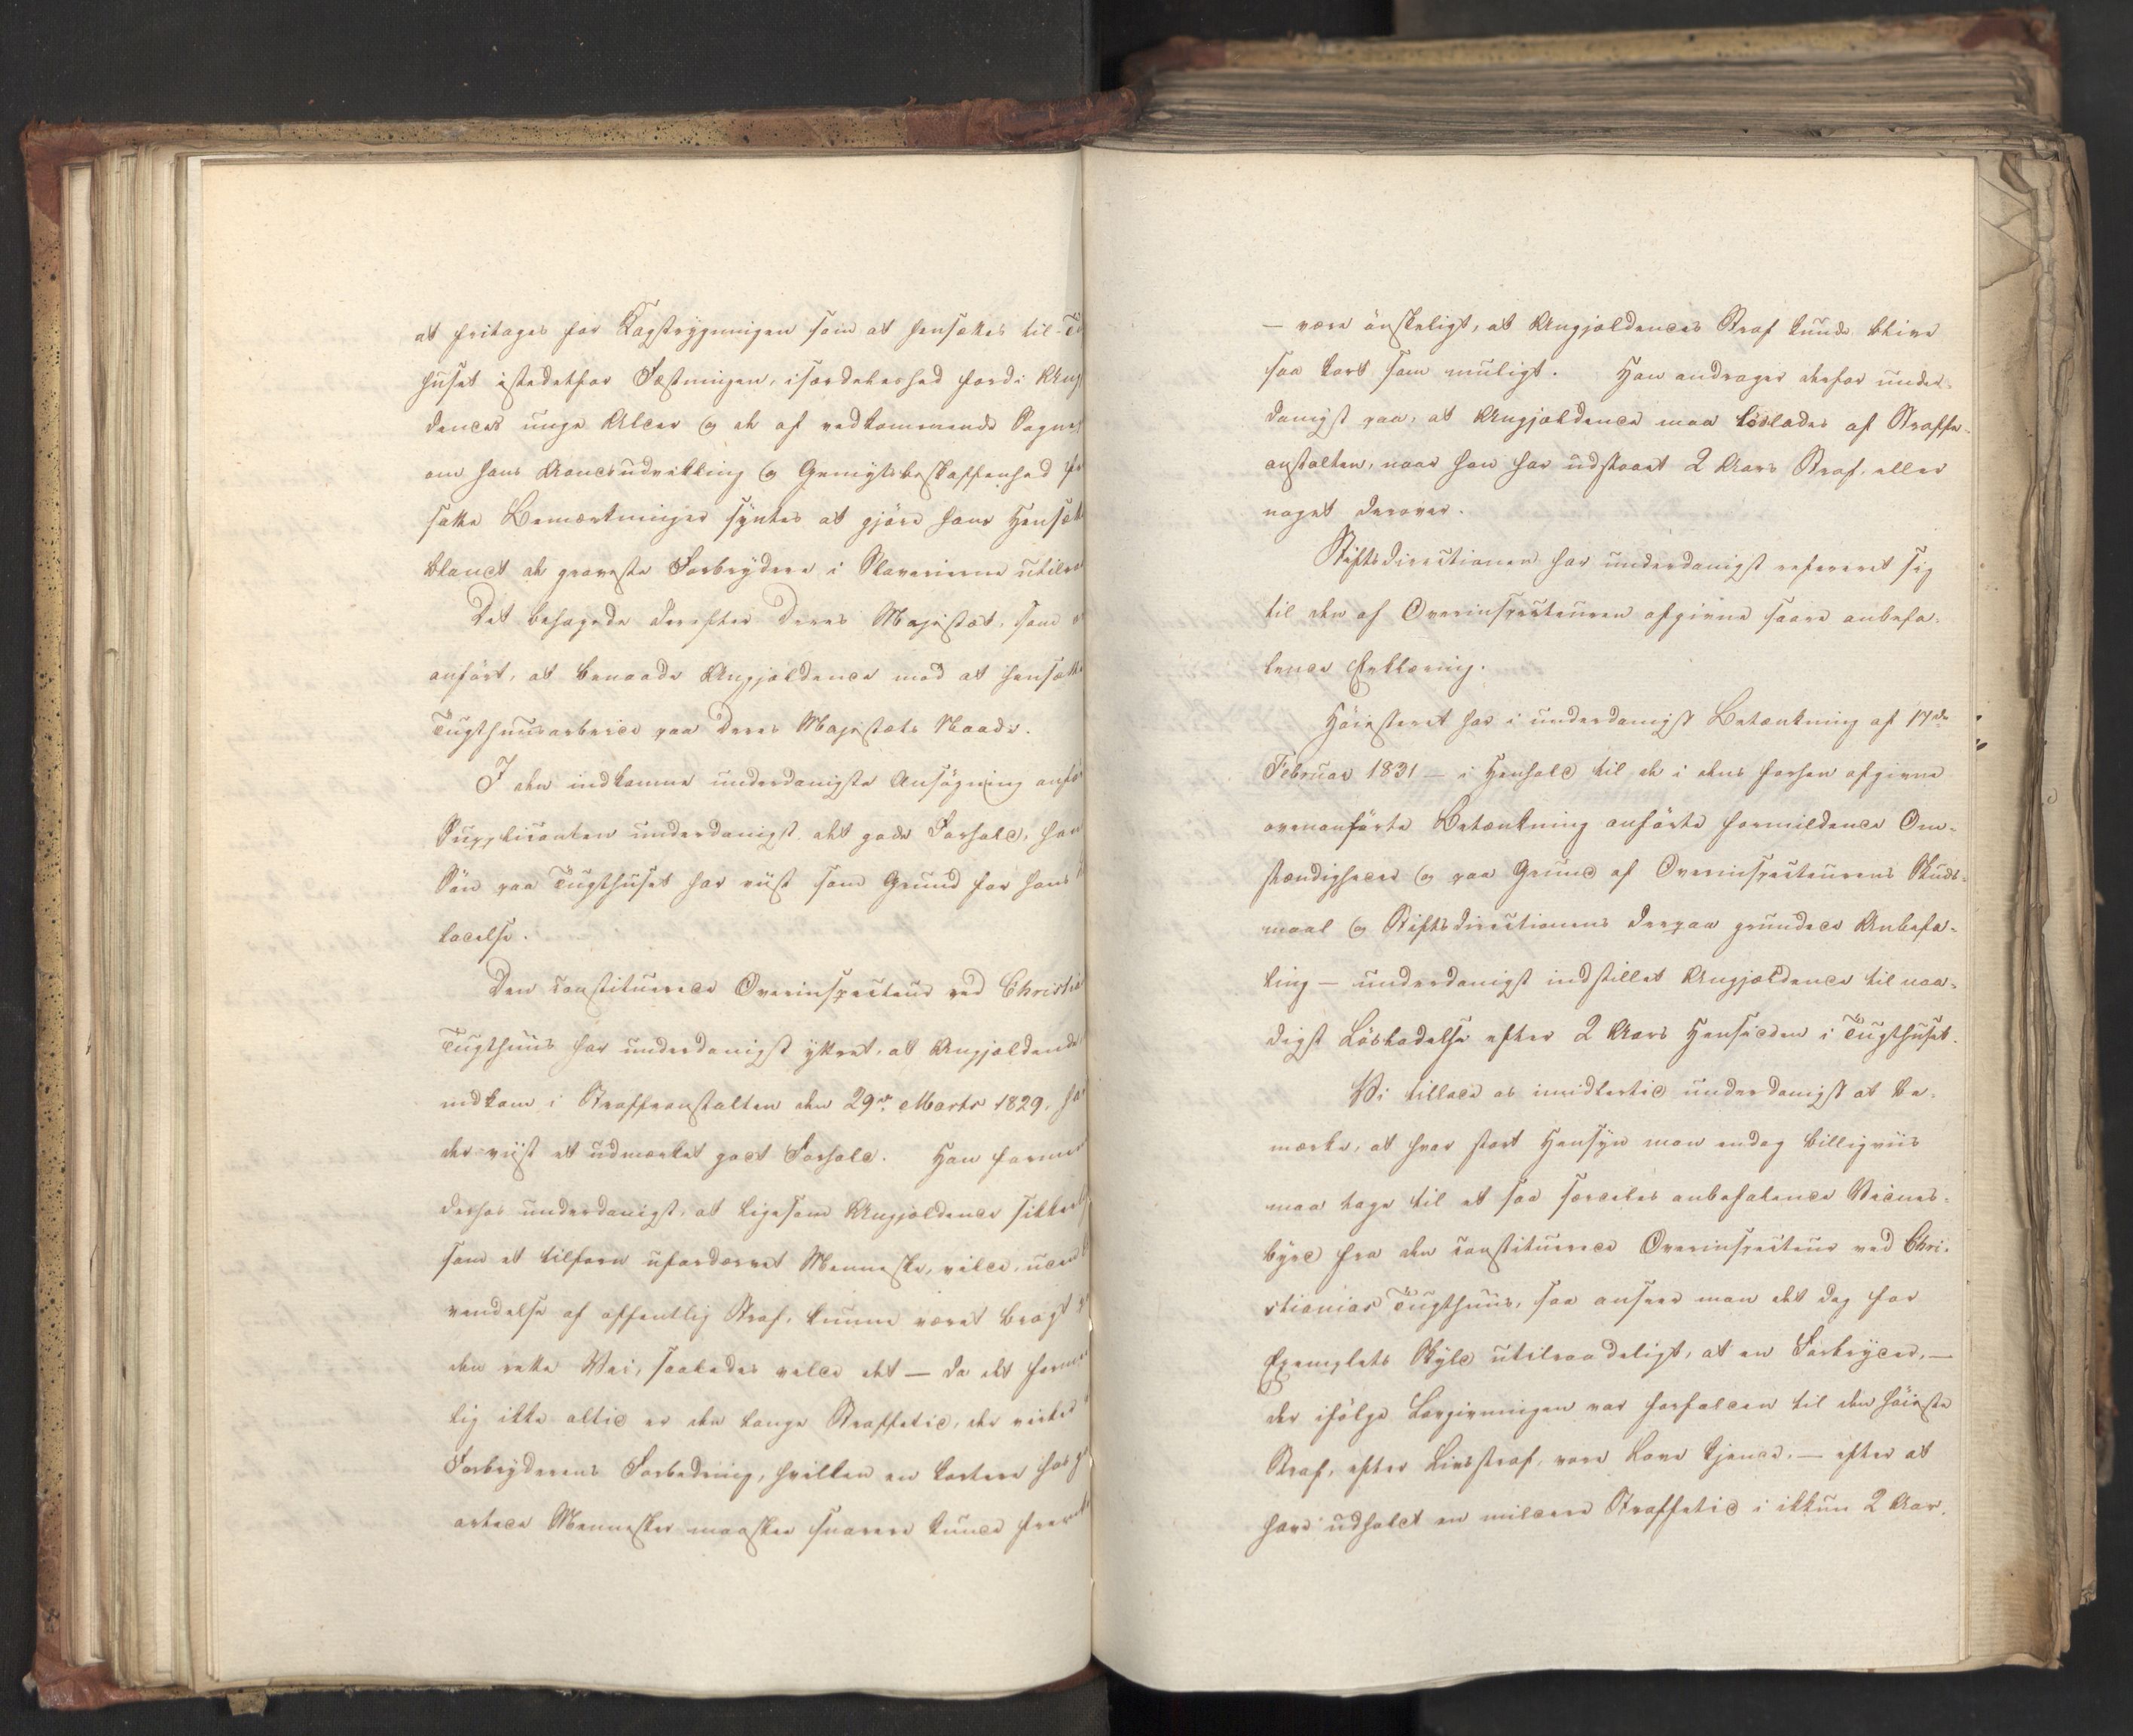 at fritages for Kagstrygningen som at hensættes til T
huset istedetfor Fæstningen, isærdeleshed fordi Ang
dendes unge Alder og de af vedkommende Sogne
om hans Aandsudvikling og Gemytsbeskaffenhed
satte Bemærkninger syntes at gjøre hans Hensæt
blandt de groveste Forbrydere i Slaverierne utilra
Det behagede derefter Deres Majestæt, som
anført, at benaade Angjældende med at hensætte
Tugthuusarbeide paa Deres Majestæts Naade.
I den indkomne underdanigste Ansøgning anfø
Supplicanten underdanigst det gode Forhold, han
Søn paa Tugthuset har viist som Grund for hans
ladelse.
Den constituerede Overinspecteur ved Christia
Tugthuus har underdanigst yttret, at Angjældende
indkom i Straffeanstalten den 29de Marts 1829, ha
der viist et udmærket godt Forhold. Han formen
derhos underdanigst, at ligesom Angjældende sikkert
som et tilforn ufordærvet Menneske, vilde, uden
vendelse af offentlig Straf, kunne været bragt
den rette Vei, saaledes vilde det — da det formen
lig ikke altid er den lange Straffetid, der virker
Forbryderens Forbedring, hvilken en kortere hos g
artede Mennesker maaskee snarere kunde frem
— være ønskeligt, at Angjældendes Straf kunde blive
saa kort som muligt. Han andrager derfor under-
danigst paa, at Angjældende maa løslades af Straffe-
anstalten, naar han har udstaaet 2 Aars Straf, eller
noget derover.
Stiftsdirectionen har underdanigst refereret sig
til den af Overinspecteuren afgivne saare anbefa-
lende Erklæring.
Høiesteret har i underdanigst Betænkning af 17de
Februar 1831 — i Henhold til de i dens forhen afgivne
ovenanførte Betænkning anførte formildende Om-
stændigheder og paa Grund af Overinspecteurens Skuds-
maal og Stiftsdirectionens derpaa grundede Anbefa-
ling — underdanigst indstillet Angjældende til naa-
digst Løsladelse efter 2 Aars Hensidden i Tugthuset.
Vi tillade os imidlertid underdanigst at be-
mærke, at hvor stort Hensyn man endog billigviis
maa tage til et saa særdeles anbefalende Vidnes-
byrd fra den constituerede Overinspecteur ved Chri-
stianias Tugthuus, saa anseer man det dog for
Exemplets Skyld utilraadeligt, at en Forbryder, —
der ifølge Lovgivningen var forfalden til den høieste
Straf, efter Livsstraf, vore Love kjende, — efter at
have udholdt en mildere Straffetid i ikkun 2 Aar,